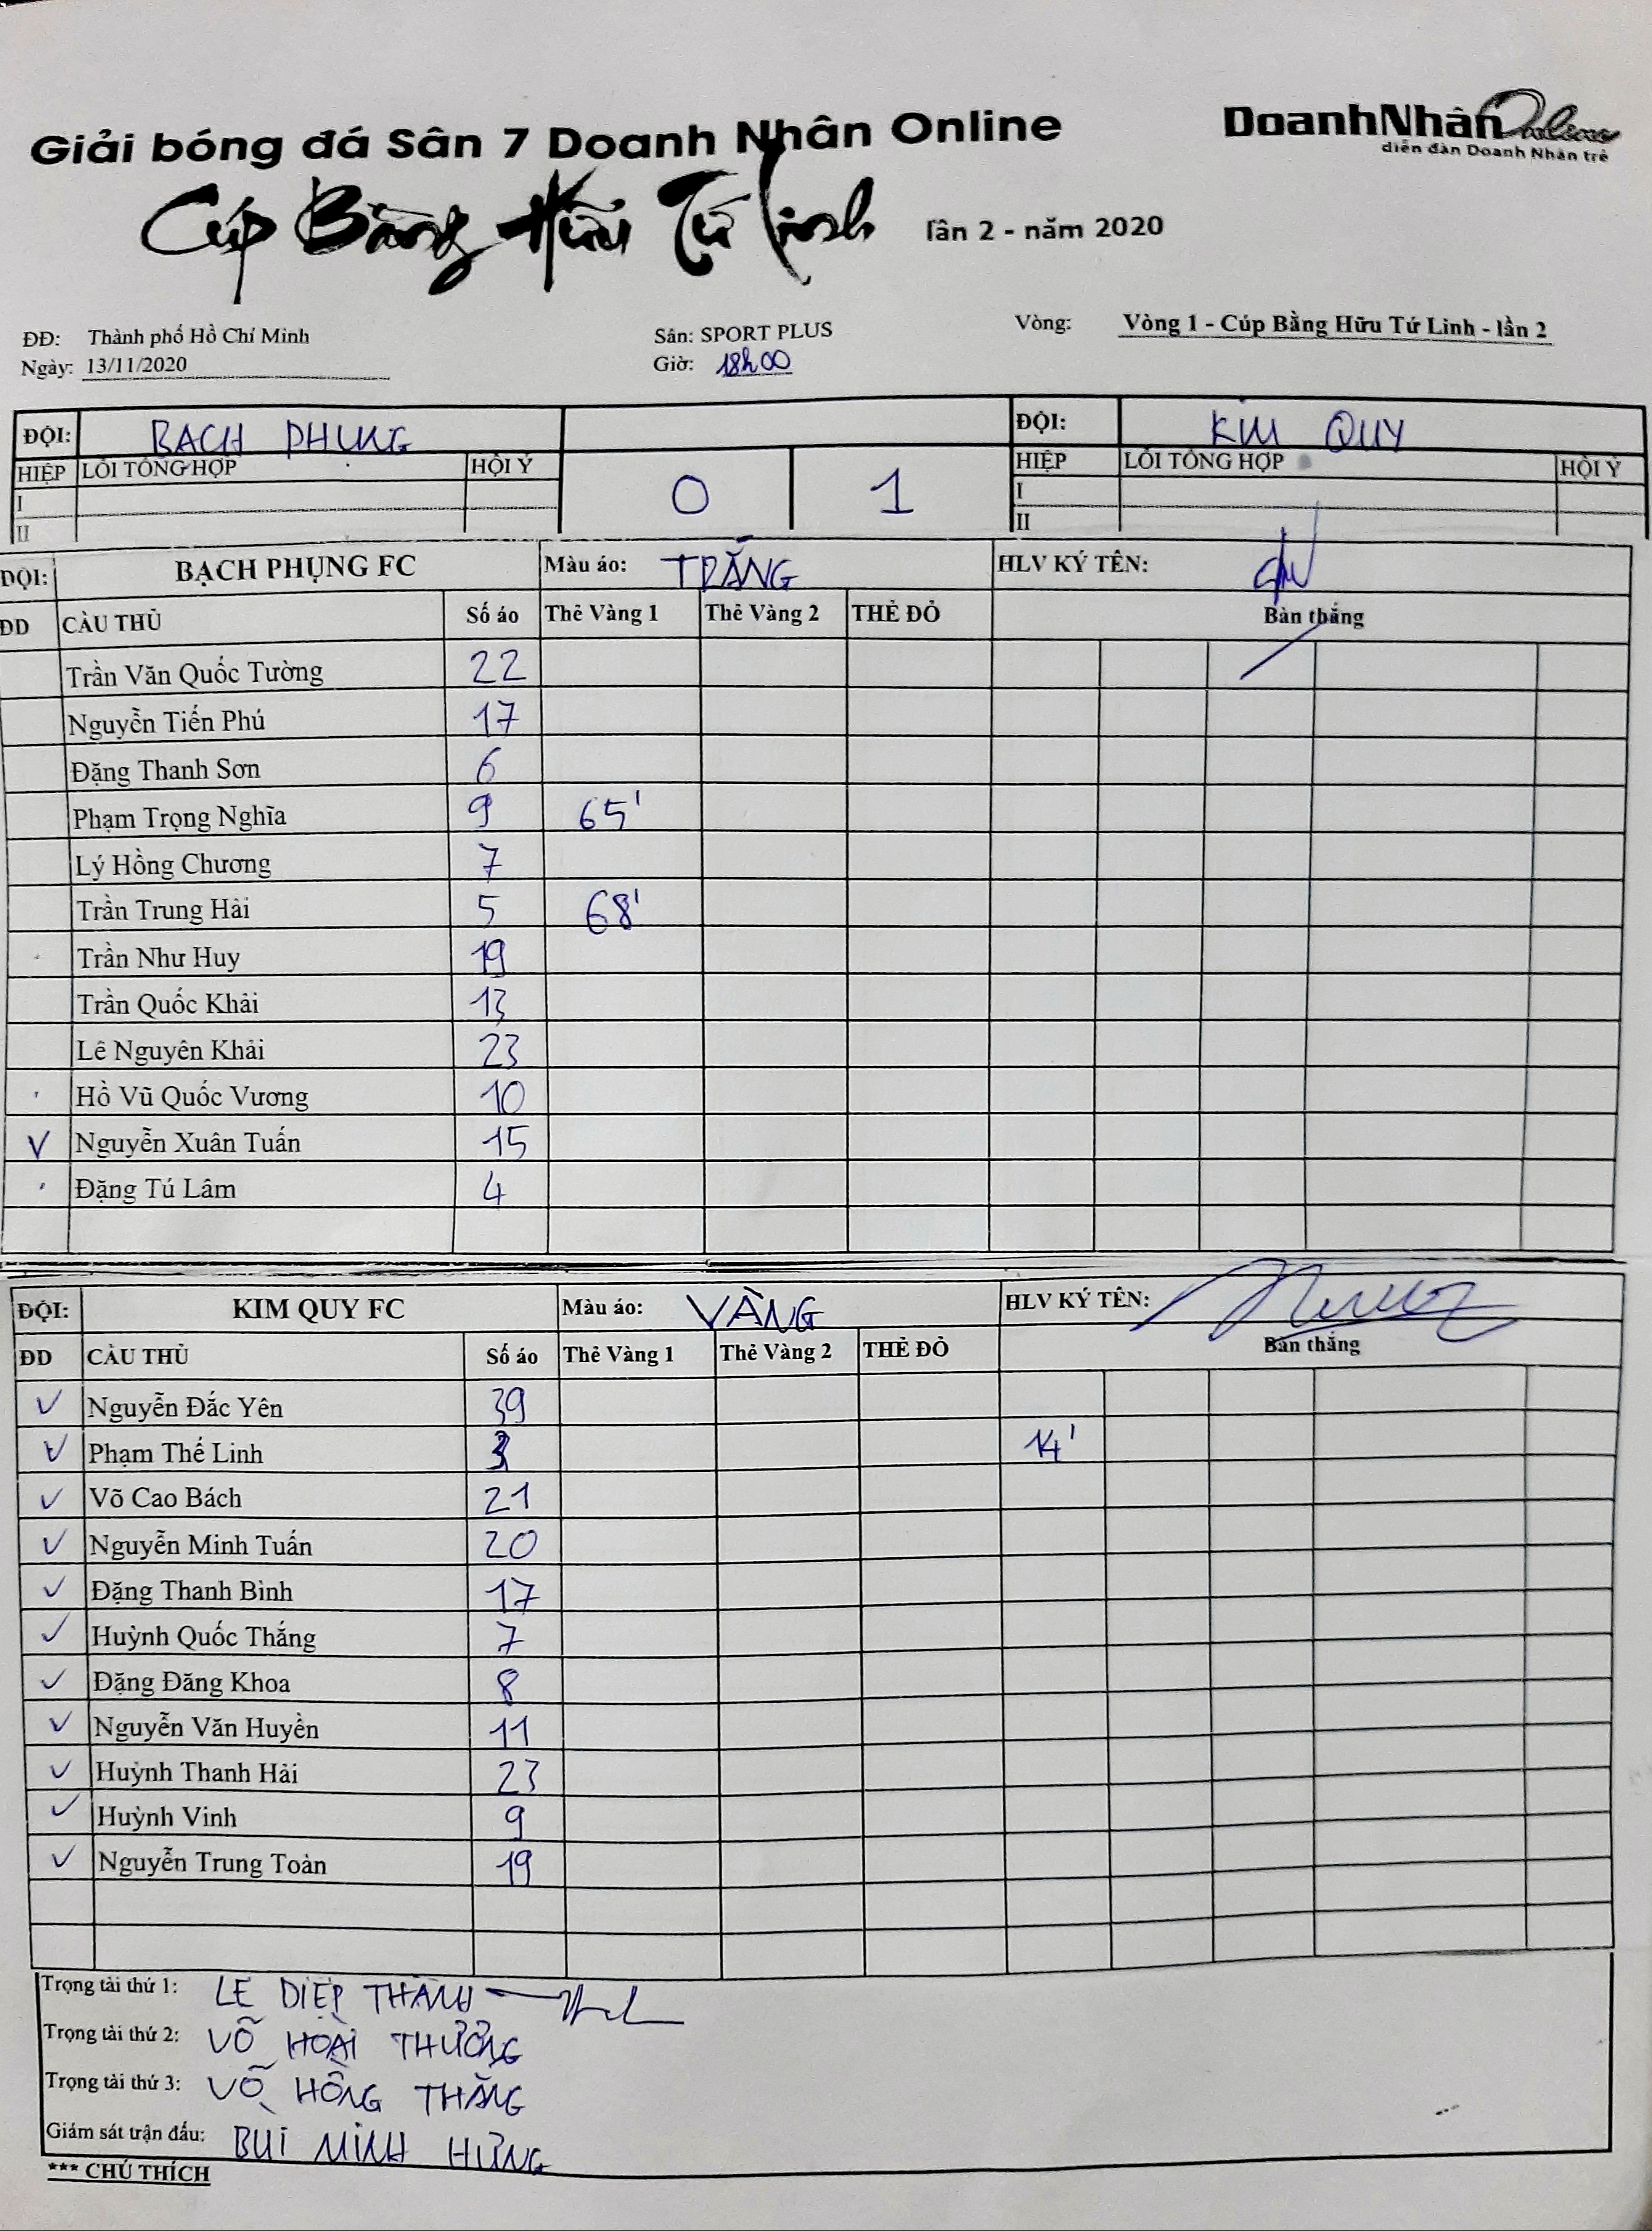 Giải bóng đá Sân 7 Doanh Nhân Online
DoanhNhân Online
diễn đàn Doanh Nhân trẻ
Cúp Bằng Hữu Tứ Linh lần 2 - năm 2020
ĐĐ: Thành phố Hồ Chí Minh Sân: SPORT PLUS Vòng: Vòng 1 - Cúp Bằng Hữu Tứ Linh - lần 2
Ngày: 13/11/2020 Giờ: 18h00
ĐỘI: BẠCH PHỤNG ĐỘI: KIM QUY
HIỆP LỖI TỔNG HỢP HỘI Ý 0 1 HIỆP LỖI TỔNG HỢP HỘI Ý
I I
II II
ĐỘI: BẠCH PHỤNG FC Màu áo: TRẮNG HLV KÝ TÊN:
ĐD CẦU THỦ Số áo Thẻ Vàng 1 Thẻ Vàng 2 THẺ ĐỎ Bàn thắng
Trần Văn Quốc Tường 22
Nguyễn Tiến Phú 17
Đặng Thanh Sơn 6
Phạm Trọng Nghĩa 9 65'
Lý Hồng Chương 7
Trần Trung Hải 5 68'
Trần Như Huy 19
Trần Quốc Khải 13
Lê Nguyên Khải 23
Hồ Vũ Quốc Vương 10
V Nguyễn Xuân Tuấn 15
Đặng Tú Lâm 4
ĐỘI: KIM QUY FC Màu áo: VÀNG HLV KÝ TÊN:
ĐD CẦU THỦ Số áo Thẻ Vàng 1 Thẻ Vàng 2 THẺ ĐỎ Bàn thắng
✓ Nguyễn Đắc Yên 39
✓ Phạm Thế Linh 3 14'
✓ Võ Cao Bách 21
✓ Nguyễn Minh Tuấn 20
✓ Đặng Thanh Bình 17
✓ Huỳnh Quốc Thắng 7
✓ Đặng Đăng Khoa 8
✓ Nguyễn Văn Huyền 11
✓ Huỳnh Thanh Hải 23
✓ Huỳnh Vinh 9
✓ Nguyễn Trung Toàn 19
Trọng tài thứ 1: LÊ DIỆP THÀNH
Trọng tài thứ 2: VÕ HOÀI THƯƠNG
Trọng tài thứ 3: VÕ HỒNG THẮNG
Giám sát trận đấu: BÙI MINH HƯNG
*** CHÚ THÍCH